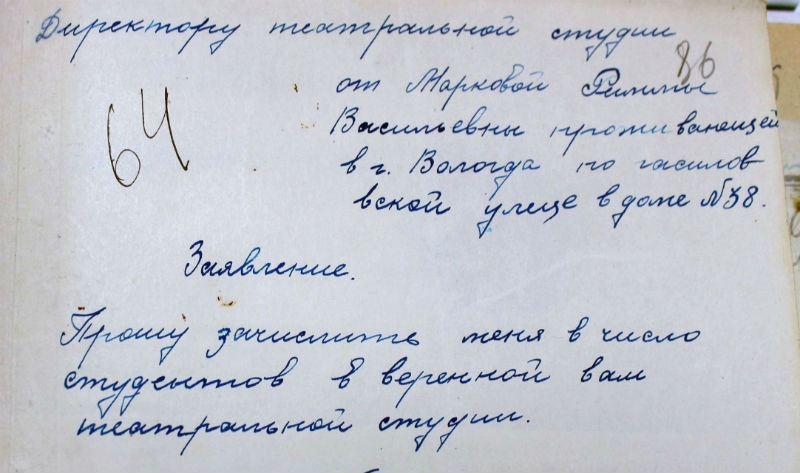 Директору театральной студии
86
от Марковой Риммы
64
Васильевны проживающей
в г. Вологда по гасилов
вской улеце в доме №38.
Заявление.
Прошу зачислить меня в число
студентов в веренной вам
театральной студии.